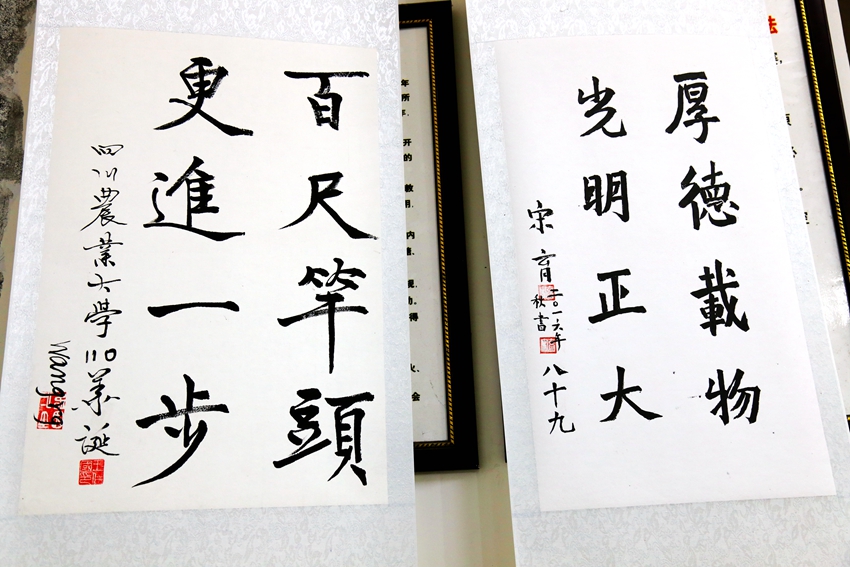 百尺竿頭
更進一步
四川農業大學110華誕
Wang
厚德載物
光明正大
宋育
二〇一六年
秋書
八十九
法
年
所
开
的
教
用
内
得
会